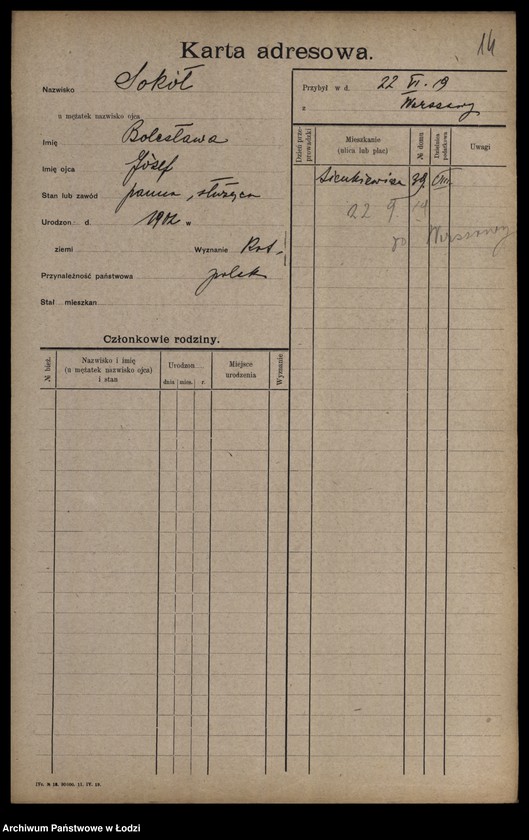 14
Karta adresowa.
Nazwisko Sokół
u mężatek nazwisko ojca
Imię Bolesława
Imię ojca Józef
Stan lub zawód panna, służąca
Urodzon. d. 1902 w
ziemi Wyznanie Kat.
Przynależność państwowa polsk
Stał. mieszkan.
Przybył w d. 22 VI. 19
z Warszawy
Dzień przeprowadzki
Mieszkanie (ulica lub plac)
№ domu
Dzielnica podatkowa
Uwagi
Sienkiewicza 39 VIII
22 9 19
do Warszawy
Członkowie rodziny.
№ bież.
Nazwisko i imię (u mężatek nazwisko ojca) i stan
Urodzon.
dnia mies. r.
Miejsce urodzenia
Wyznanie
IVc. № 18. 50000. 11. IV. 19.
Archiwum Państwowe w Łodzi